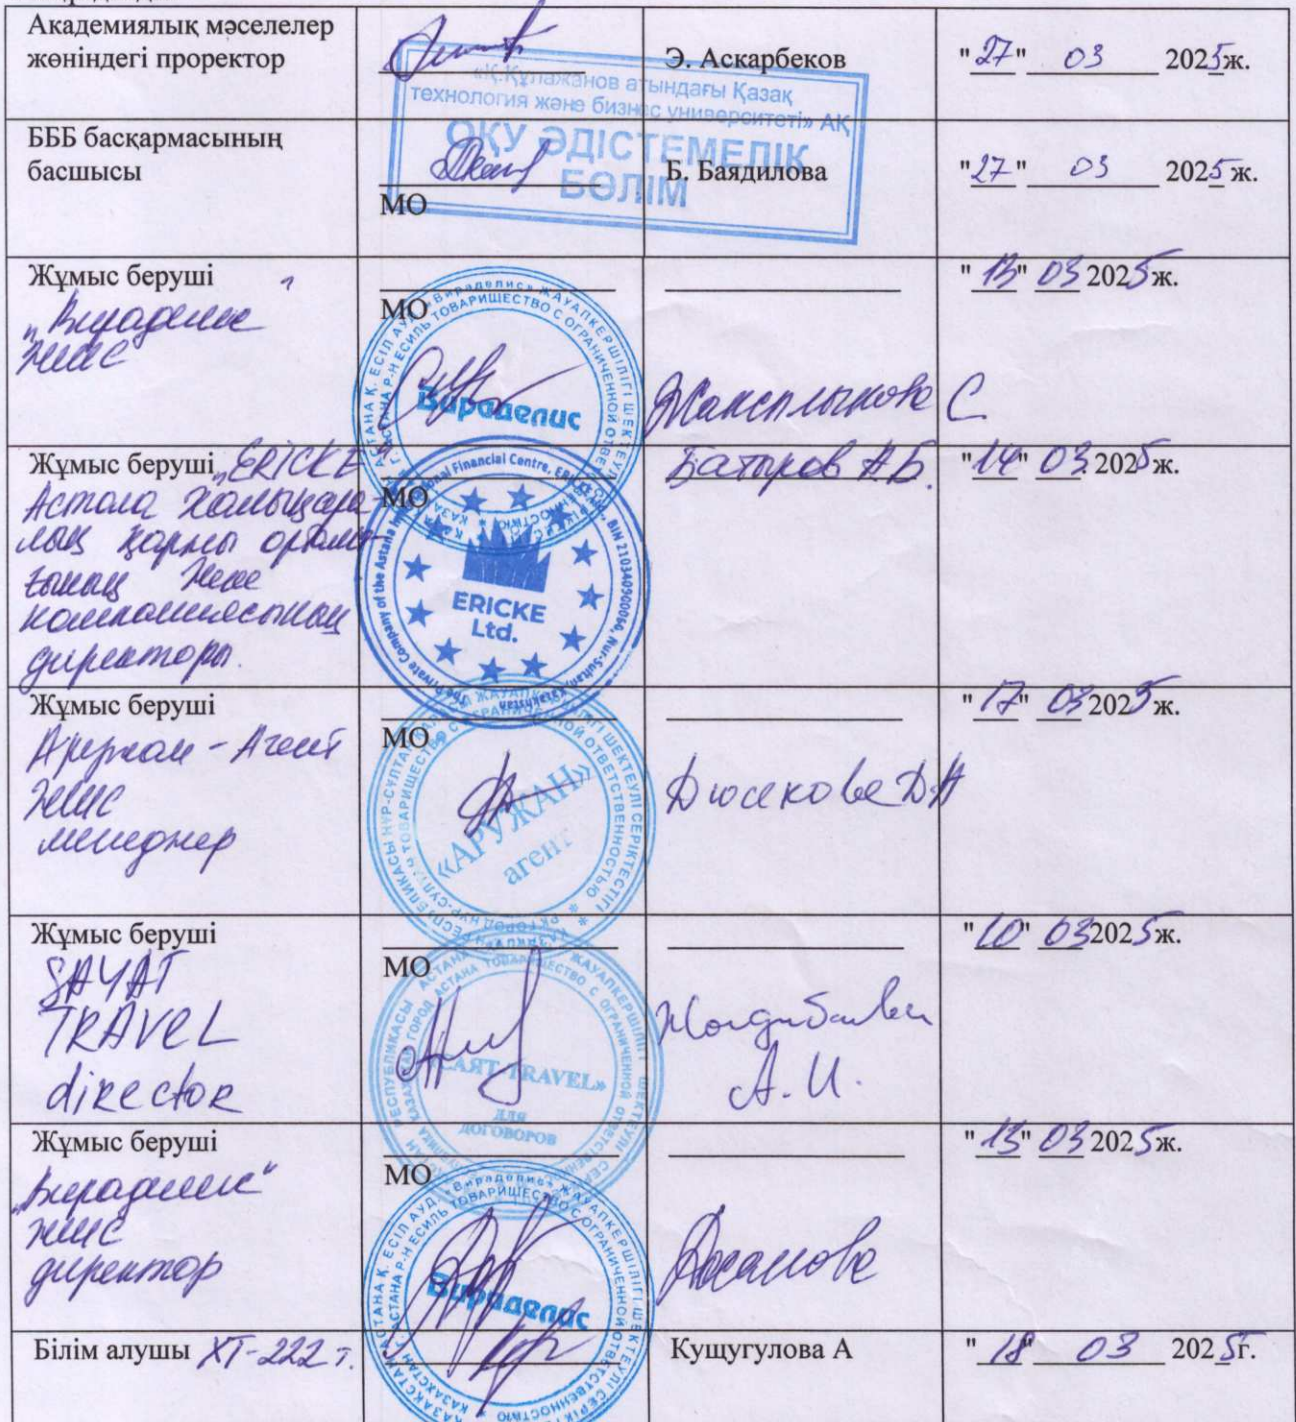 Академиялық мәселелер
жөніндегі проректор
Э. Аскарбеков
"27" 03 2025ж.
«Қ.Құлажанов атындағы Қазақ
технология және бизнес университеті» АҚ
ОҚУ ӘДІСТЕМЕЛІК
БӨЛІМ
БББ басқармасының
басшысы
МО
Б. Баядилова
"27" 03 2025 ж.
Жұмыс беруші
"Вираделис"
ЖШС
МО
Вираделис
С
"13" 03 2025ж.
Жұмыс беруші "ERICKE"
Астана халықара-
лық қаржы орталы-
ғының жеке
компаниясының
директоры.
МО
ERICKE
Ltd.
Батыров А.Б.
"14" 03 2025ж.
Жұмыс беруші
Аружан - Агент
ЖШС
менеджер
МО
«АРУЖАН»
агент
Дюсекова Д.А
"17" 03 2025 ж.
Жұмыс беруші
SAYAT
TRAVEL
director
МО
«САЯТ-TRAVEL»
ДЛЯ
ДОГОВОРОВ
А.И.
"10" 03 2025ж.
Жұмыс беруші
"Вираделис"
ЖШС
директор
МО
Вираделис
"13" 03 2025ж.
Білім алушы ХТ-222 т.
Кущугулова А
"18" 03 2025г.